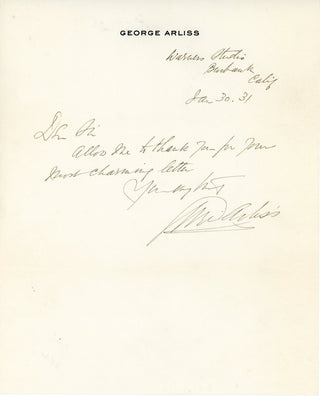 GEORGE ARLISS
Warners Studio
Burbank
Calif
Jan 30. 31
Dear Sir
Allow me to thank you for your
most charming letter
Yours very truly
Geo Arliss